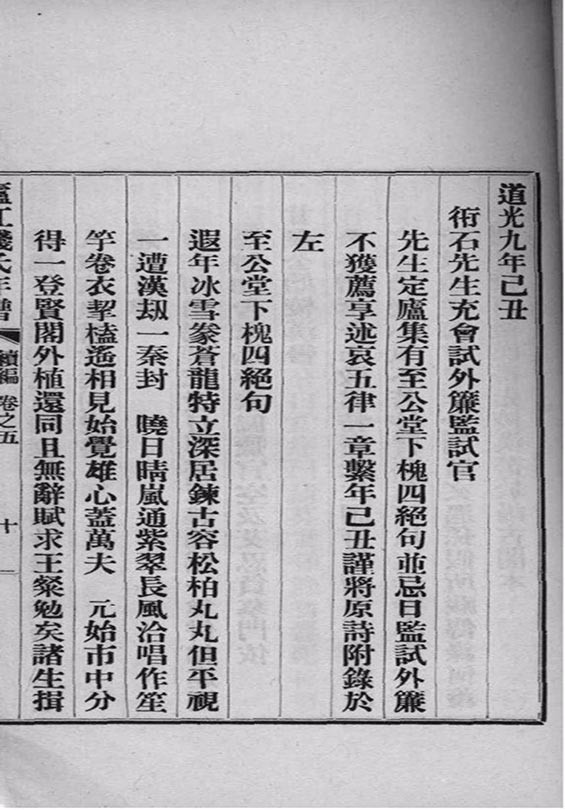 道光九年己丑
衎石先生充會試外簾監試官
先生定廬集有至公堂下槐四絕句並忌日監試外簾
不獲薦享述哀五律一章繫年己丑謹將原詩附錄於
左
至公堂下槐四絕句
遐年冰雪豢蒼龍特立深居鍊古容松柏丸丸但平視
一遭漢劫一秦封　曉日晴嵐通紫翠長風洽唱作笙
竽卷衣挈榼遙相見始覺雄心蓋萬夫　元始市中分
得一登賢閣外植還同且無辭賦求王粲勉矣諸生揖
廬江錢氏年譜　續編　卷之五　十一